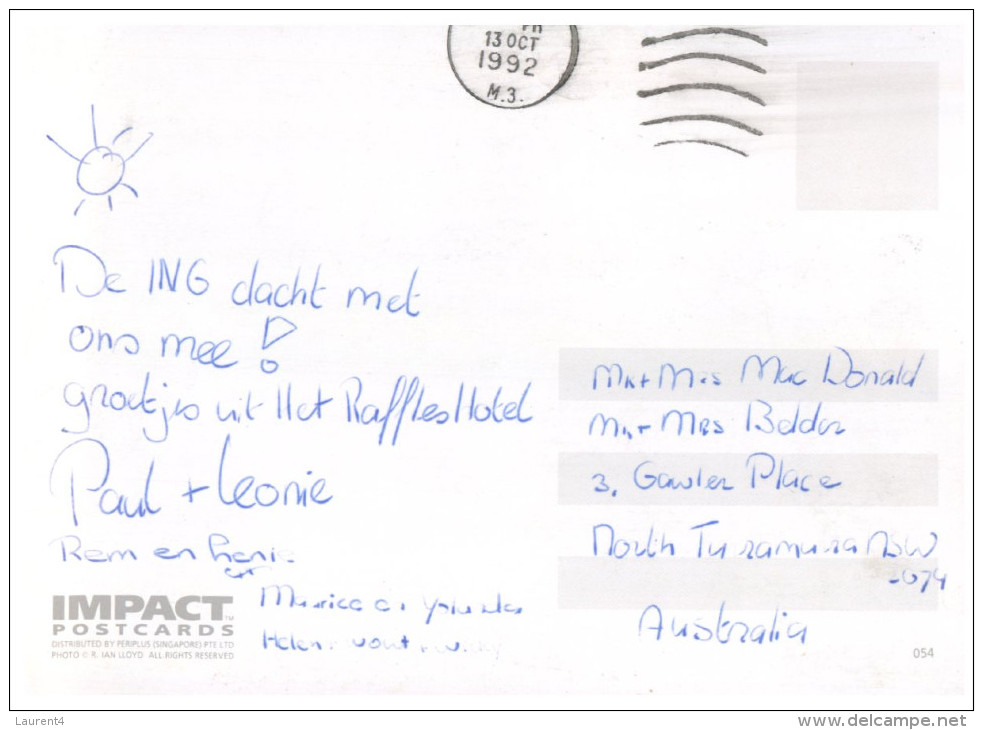 PM
13 OCT
1992
M.3.
De ING dacht met
ons mee!
groetjes uit Het Raffles Hotel
Paul + Leonie
Rem en
Helen wout
IMPACT™
POSTCARDS
DISTRIBUTED BY PERIPLUS (SINGAPORE) PTE LTD
PHOTO © R. IAN LLOYD ALL RIGHTS RESERVED
Mr + Mrs Mac Donald
Mr + Mrs Beldor
3. Gawler Place
North Turramurra NSW
2074
Australia
054
Laurent4
www.delcampe.net